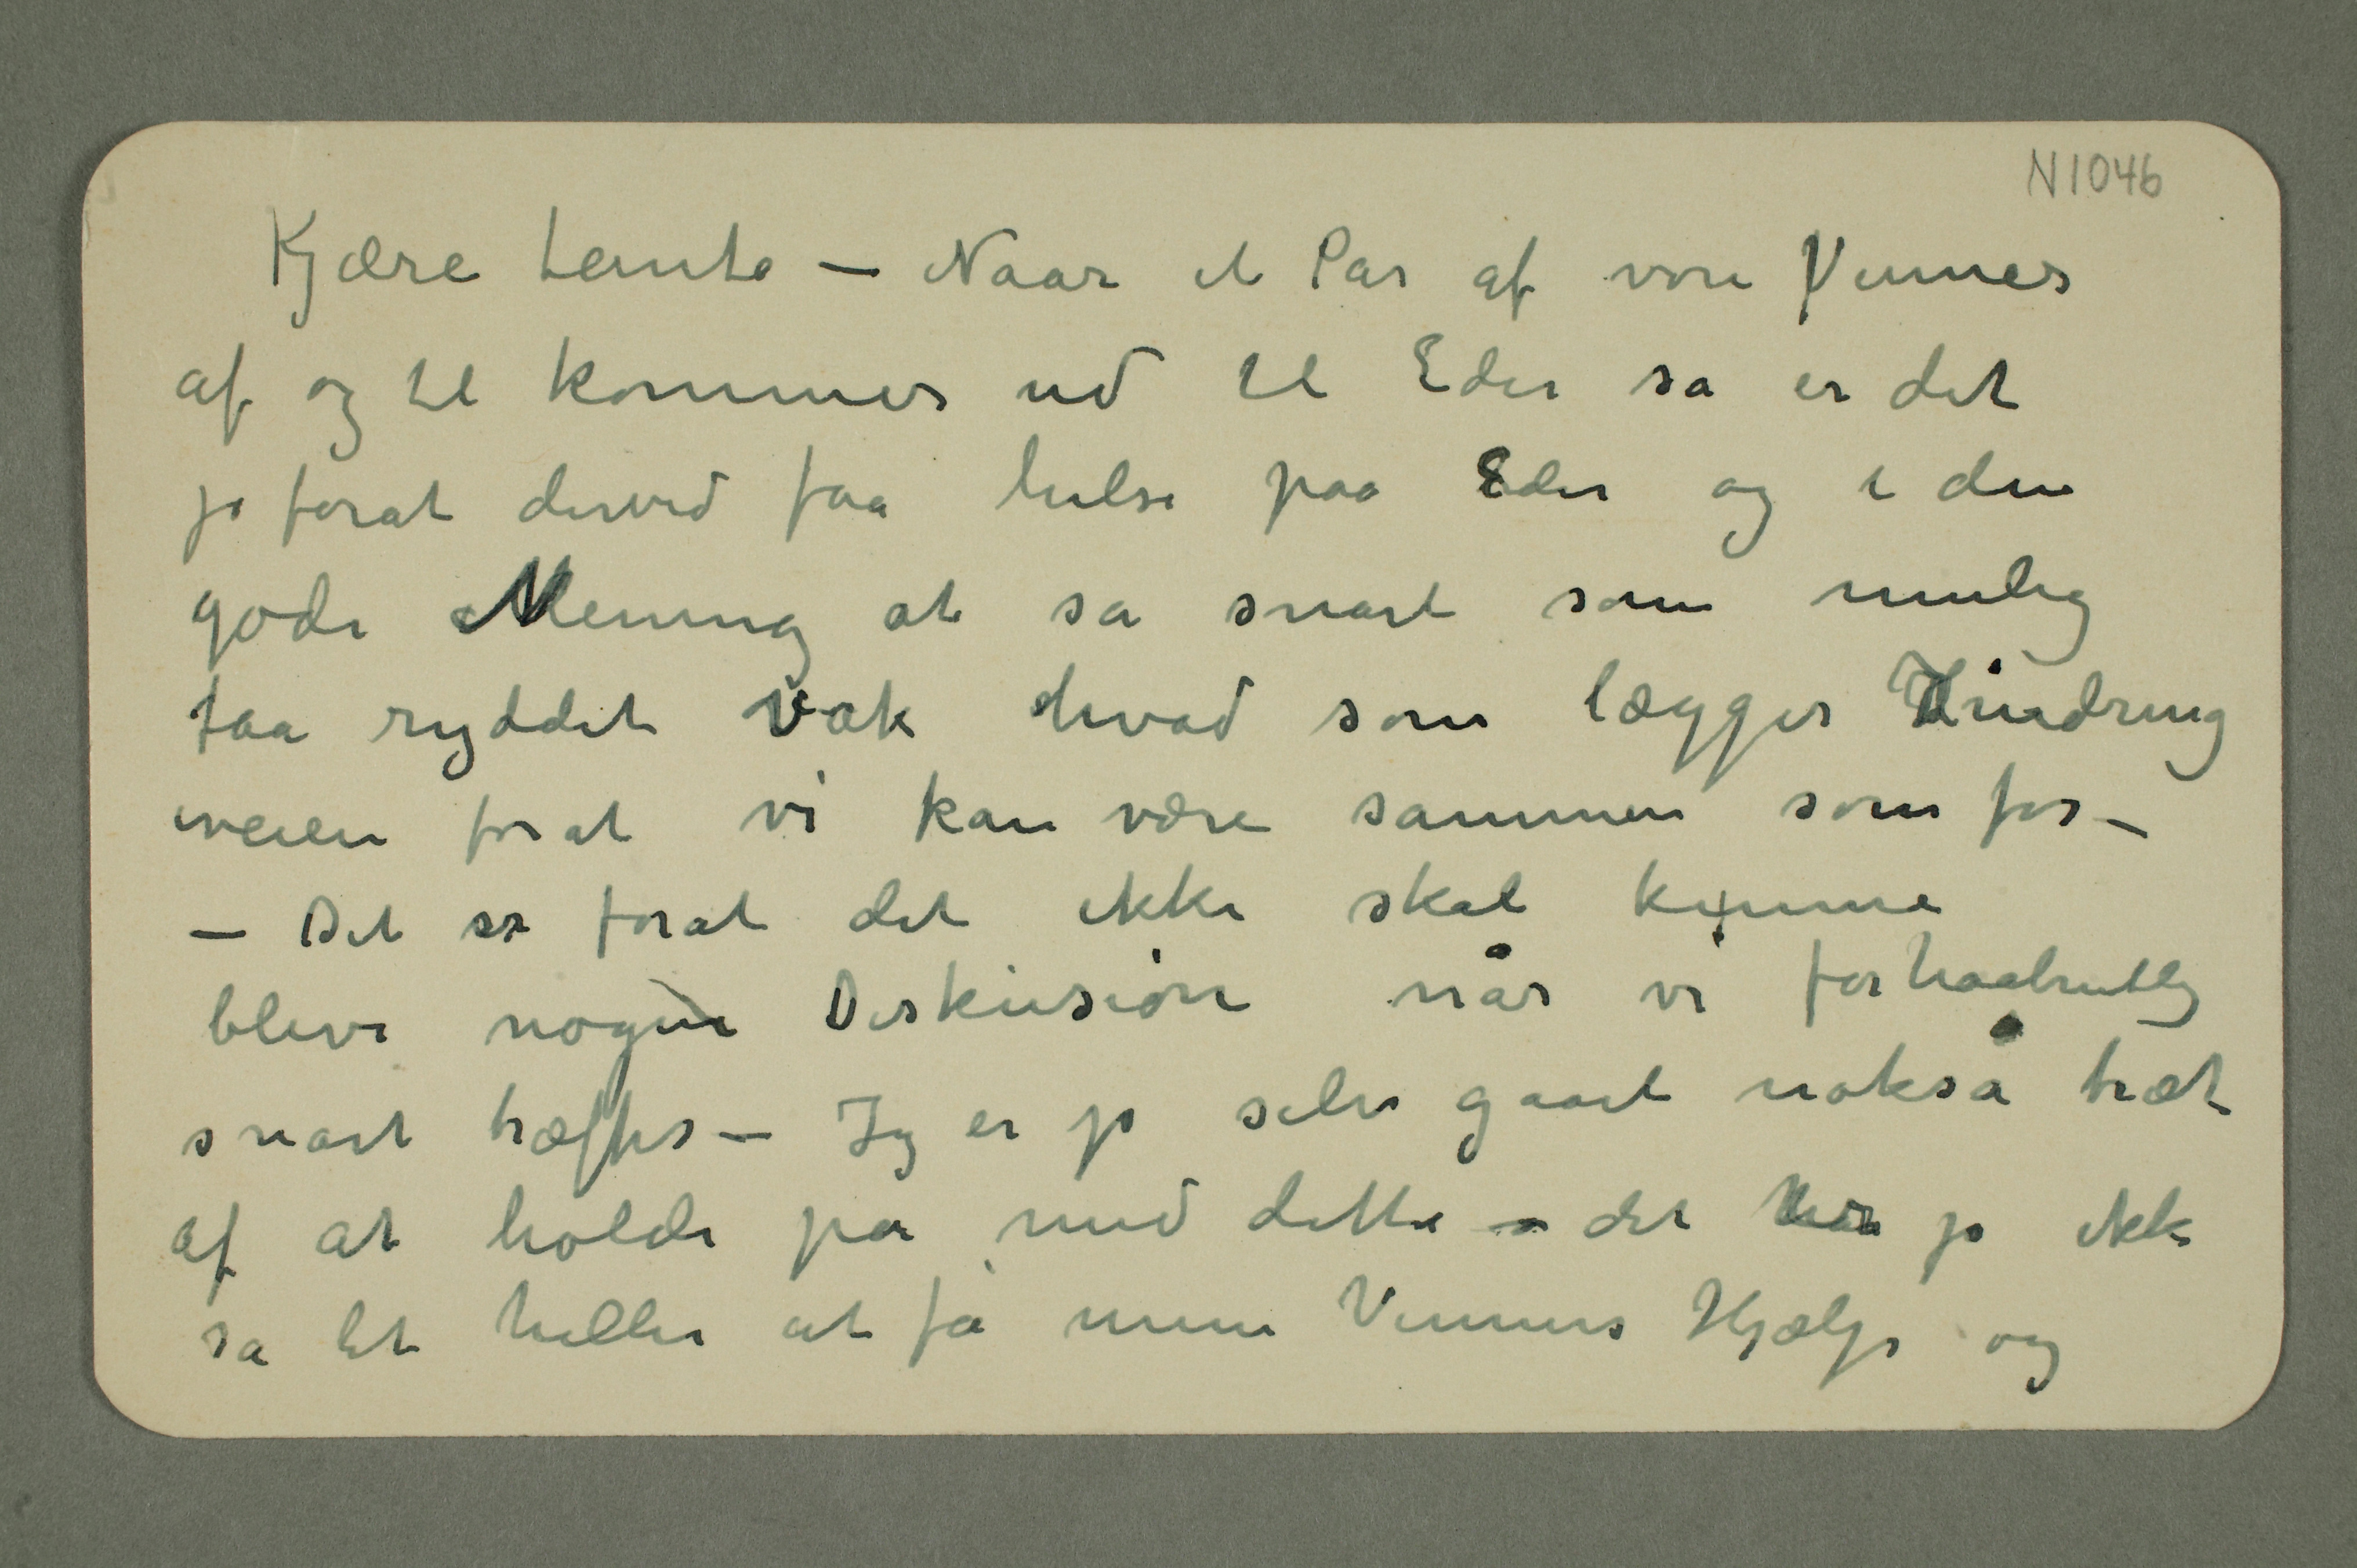 N1046
Kjære tante – Naar et Par af vore Venner
af og til kommer ud til Eder sa er det
jo forat derved faa hilse paa Eder og i den
gode Mening at sa snart som mulig
faa ryddet væk hvad som lægger Hindring
iveien forat vi kan være sammen som før –
– Det er forat det ikke skal kunne
blive nogen Diskusion når vi forhaabentlig
snart træffes – Jeg er jo selv gaaet nokså træt
af at holde pa med dette – det har jo ikke
sa let heller at få mine Venners Hjælp og